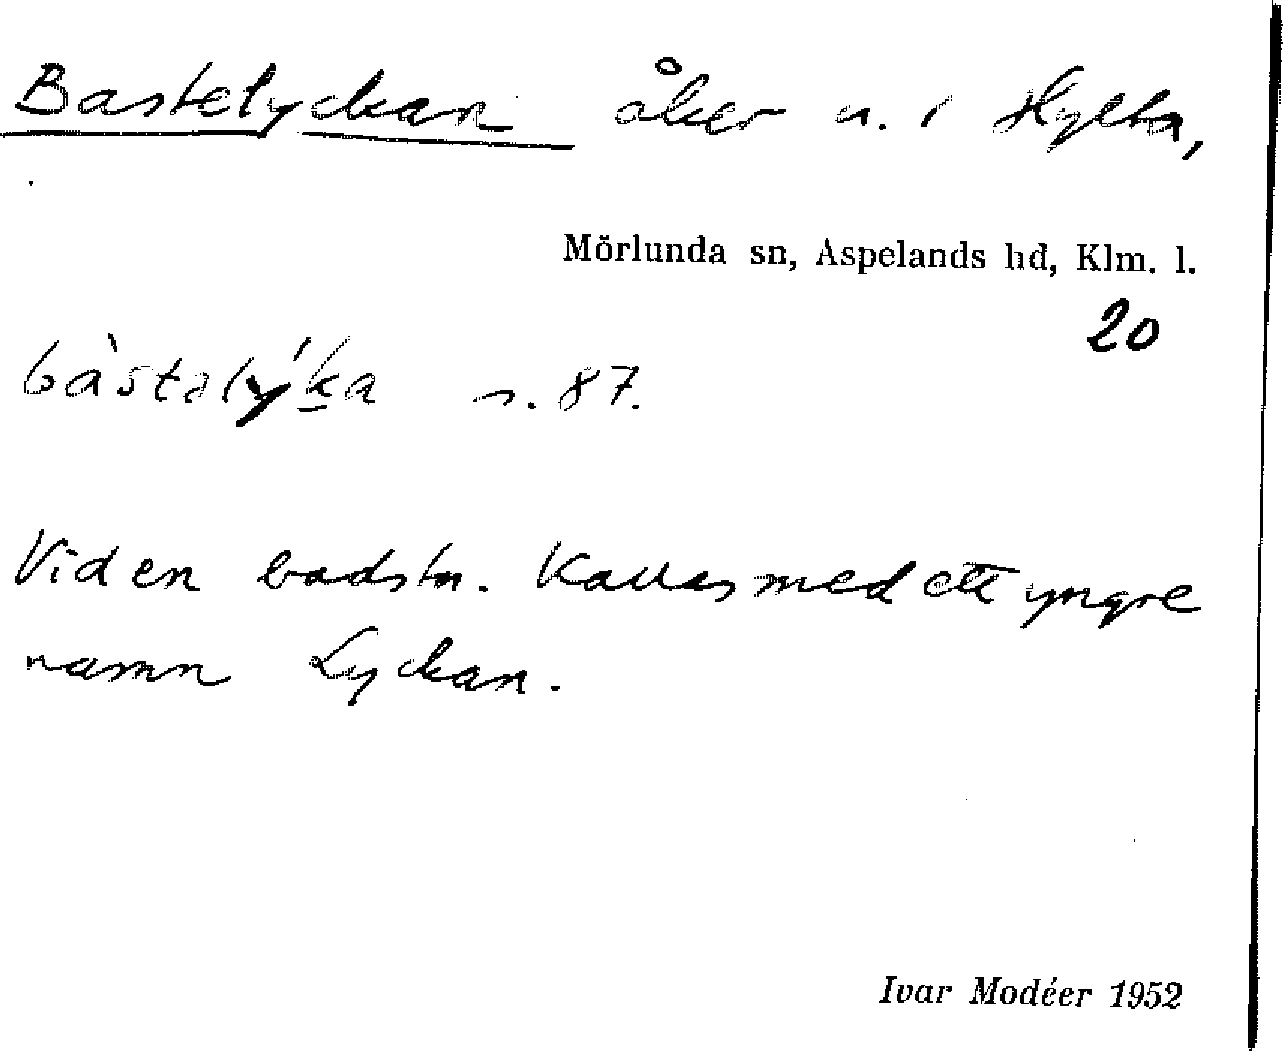 Bastelyckan åker n. i Hylta,
Mörlunda sn, Aspelands hd, Klm. l.
20
bàstəlý́ka n. 87.
Vid en badstu. Kallas med ett yngre
namn Lyckan.
Ivar Modéer 1952